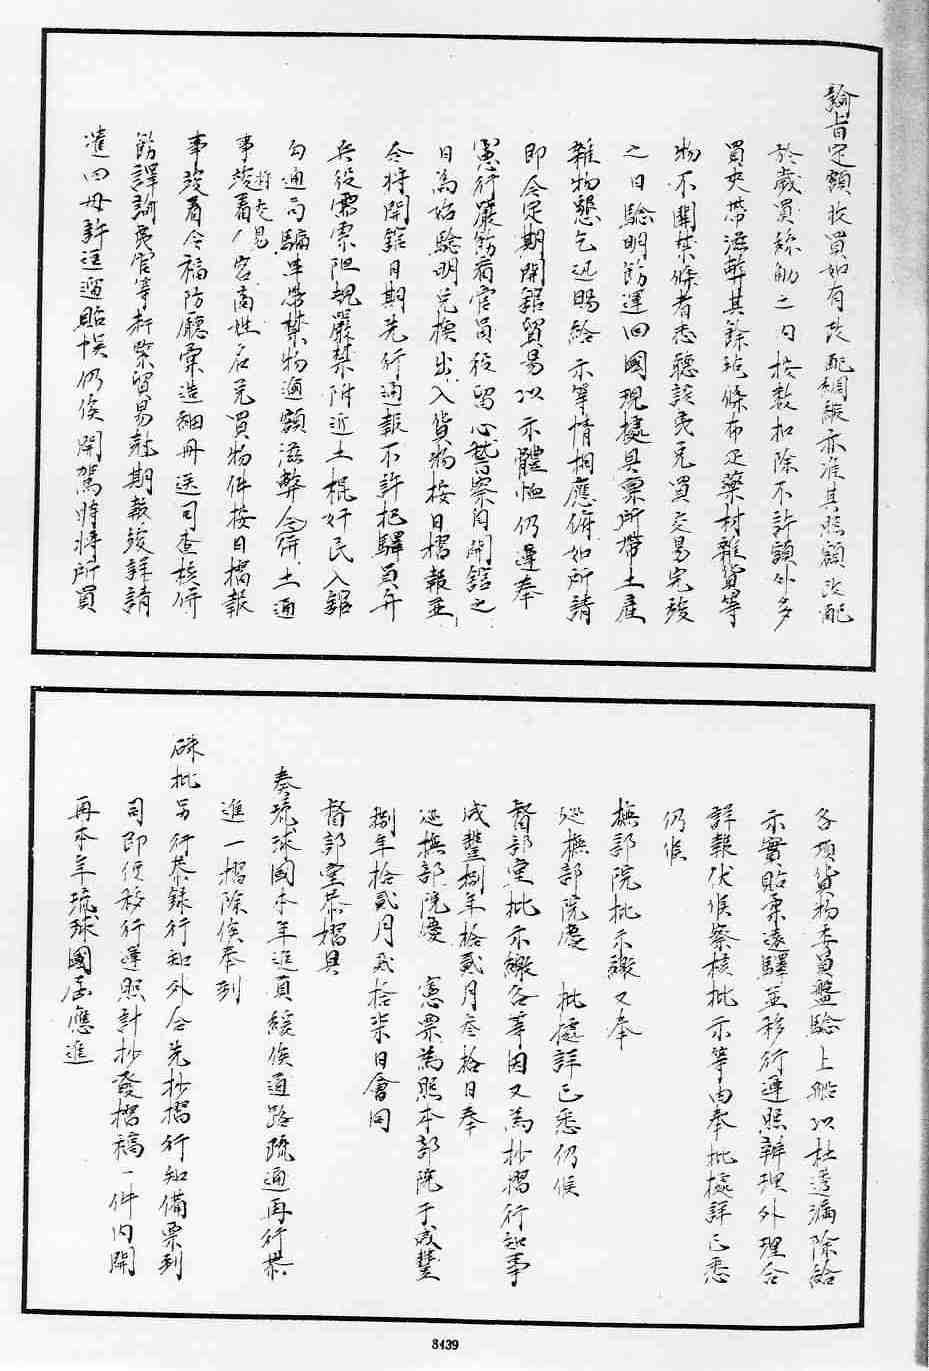 諭旨定額收買如有改配綢緞亦准其照額改配
於歲買絲觔之內按數扣除不許額外多
買夾帶滋弊其餘絨條布疋藥材雜貨等
物不關禁條者悉聽該夷兌買交易完竣
之日驗明飭運回國現據具稟所帶土產
雜物懇乞迅賜給示等情相應俯如所請
即令定期開舘貿易以示體恤仍遵奉
憲行嚴飭看官員役留心稽察自開舘之
日為始驗明兌換出入貨物按日摺報並
令將開舘日期先行通報不許把驛員弁
兵役需索阻規嚴禁附近土棍奸民入舘
勾通局騙串帶禁物逾額滋弊合併土通
事竣着令客商姓名兌買物件按日摺報
將兌完
事竣着令福防廳彙造細冊送司查核併
飭譯諭夷官等赶緊貿易尅期報竣詳請
遣回毋許逗遛貽悞仍俟開駕時將所買
各項貨物委員盤驗上船以杜透漏除給
示實貼柔遠驛並移行遵照辦理外理合
詳報伏候察核批示等由奉批據詳已悉
仍候
撫部院批示繳又奉
巡撫部院慶 批據詳已悉仍候
督部堂批示繳各等因又為抄摺行知事
咸豐捌年拾貳月叁拾日奉
巡撫部院慶 憲票為照本部院于咸豐
捌年拾貳月貳拾柒日會同
督部堂恭摺具
奏琉球國本年進貢緩俟道路疏通再行恭
進一摺除俟奉到
硃批另行恭錄行知外合先抄摺行知備票到
司即便移行遵照計抄發摺稿一件內開
再本年琉球國居應進
8439